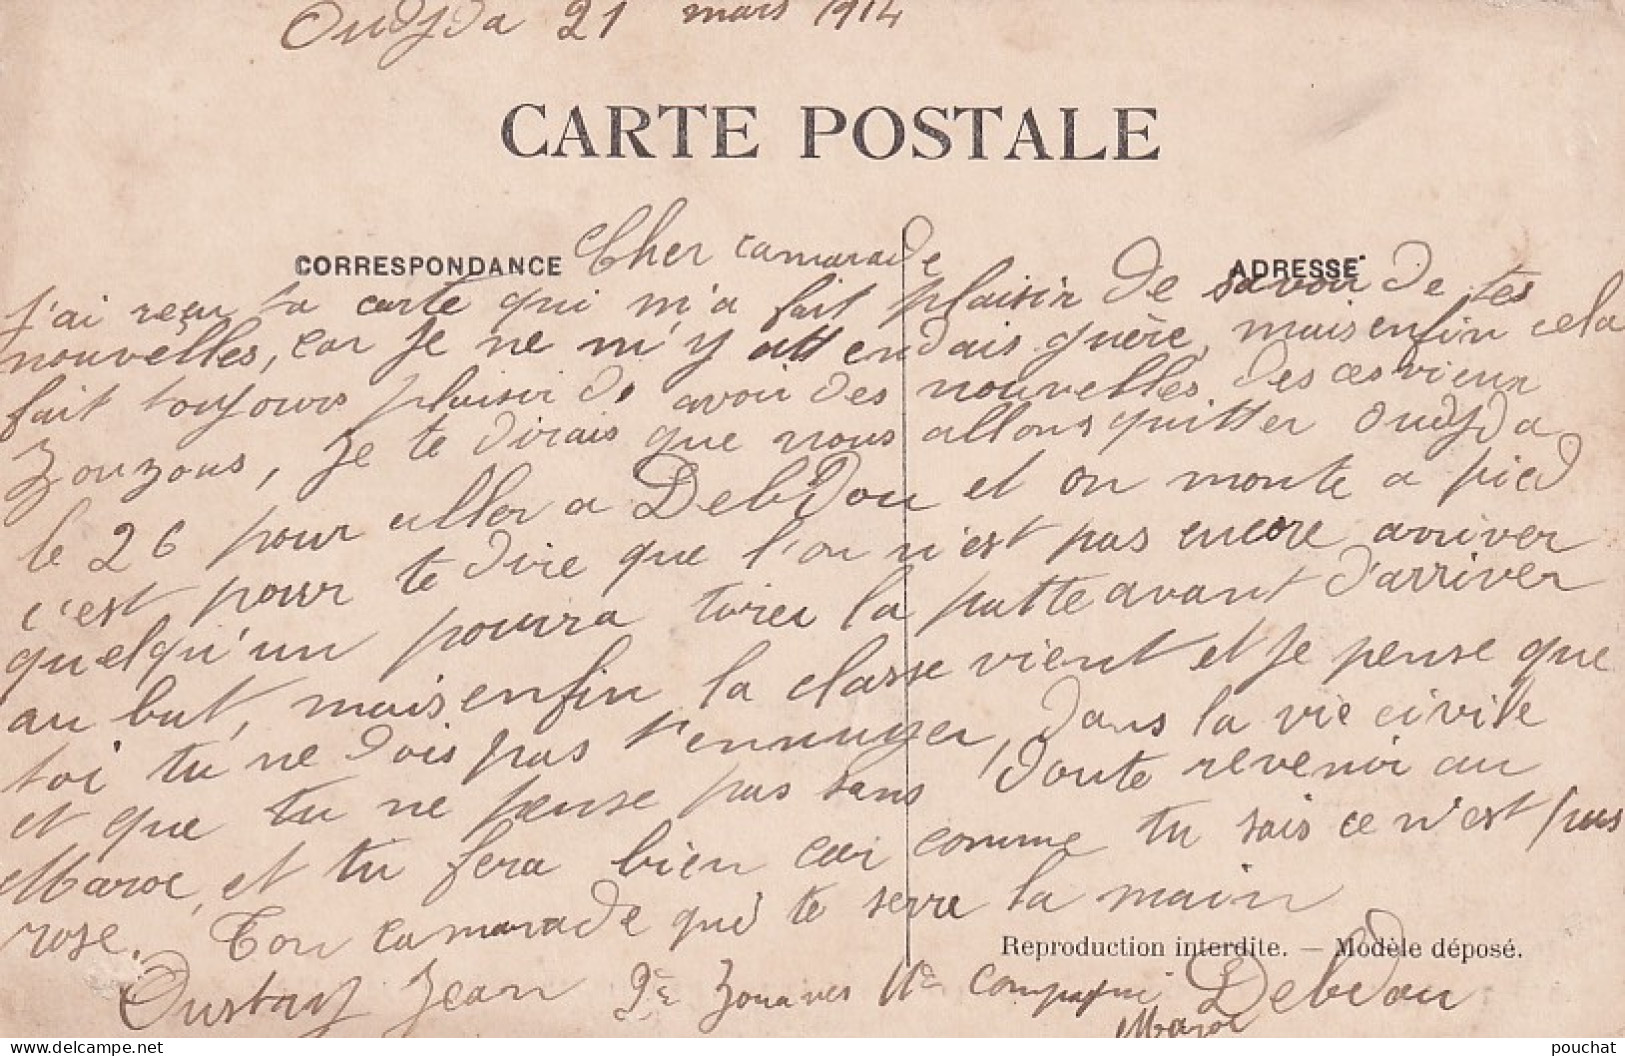 Oudjda 21 mars 1914
CARTE POSTALE
CORRESPONDANCE Cher camarade ADRESSE
J'ai reçu ta carte qui m'a fait plaisir de savoir de tes
nouvelles, car je ne m'y attendais guère, mais enfin cela
fait toujours plaisir de avoir des nouvelles des ces vieux
Zouzous, je te dirais que nous allons quitter Oudjda
le 26 pour aller a Debdou et on monte a pied
c'est pour te dire que l'on n'est pas encore arriver
quelqu'un pourra tirer la patte avant d'arriver
au but, mais enfin la classe vient et je pense que
toi tu ne dois pas t'ennuyer, dans la vie civile
et que tu ne pense pas sans doute revenir au
Maroc, et tu fera bien car comme tu sais ce n'est pas
rose. Ton camarade qui te serre la main
Reproduction interdite. — Modèle déposé.
Jean 2e Zouaves 11e compagni Debdou
Maroc
pouchat
www.delcampe.net